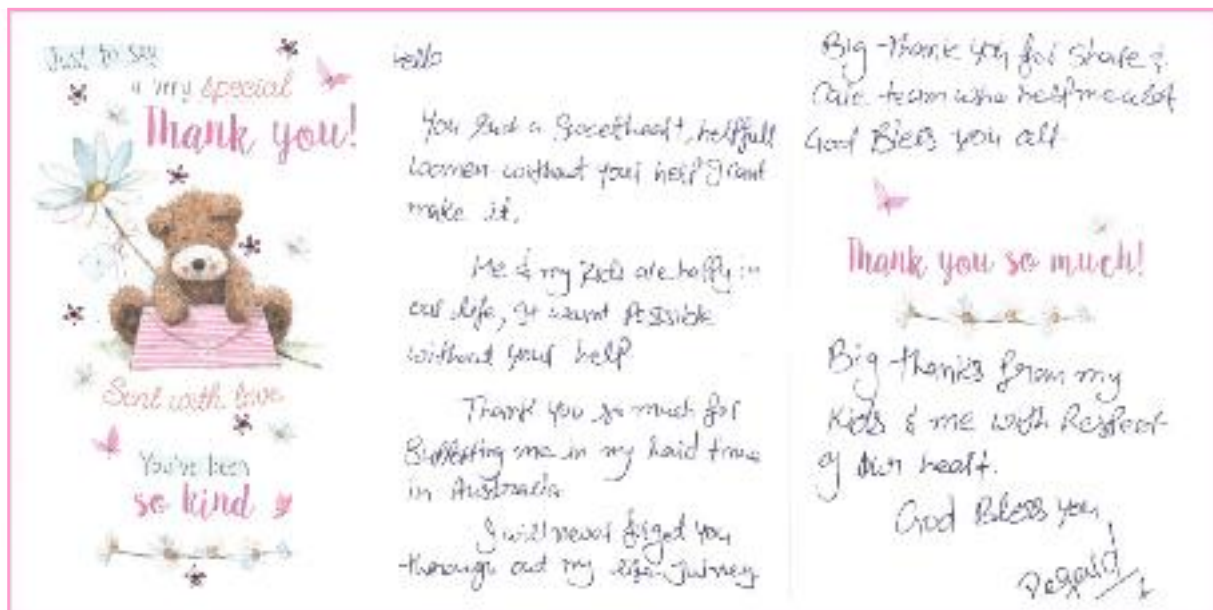 Just to say
a very special
Thank you!
Sent with love
You've been
so kind
Hello
You Such a Sweetheart, helpfull
women without your help I cant
make it.
Me & my Kids are happy in
our life, It wasnt Possible
without your help
Thank You so much for
Supporting me in my hard time
in Australia
I will never forget you
through out my life Jurney
Big thank you for Share &
Care team who help me alot
God Bless you all
Thank you so much!
Big thanks from my
Kids & me with Respect
of our heart.
God Bless you